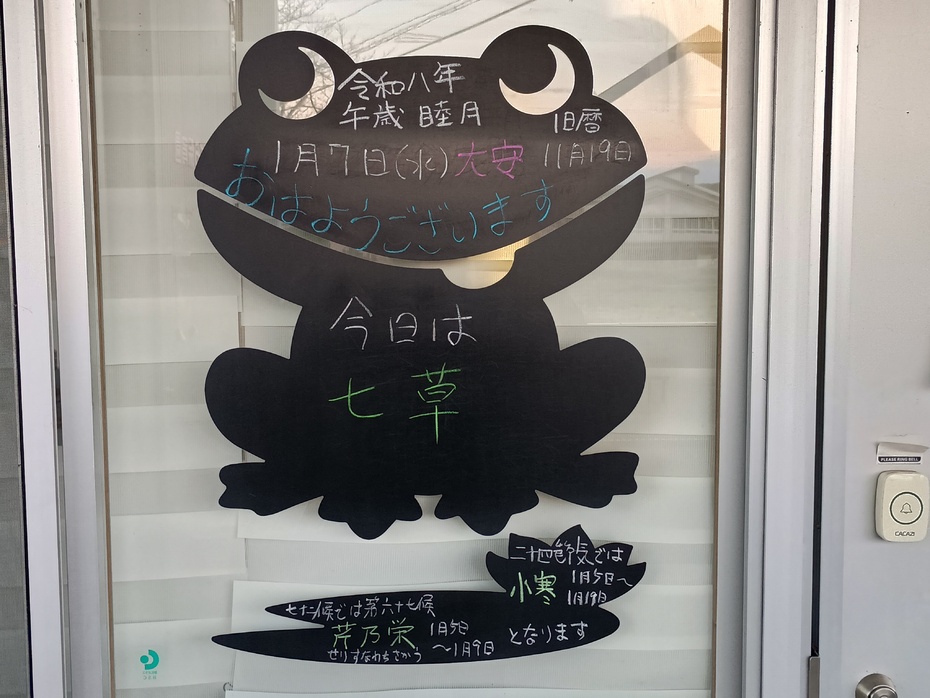 令和八年
午歳 睦月
旧暦
1月7日(水)大安 11月19日
おはようございます
今日は
七草
二十四節気では
小寒 1月5日〜
1月19日
七十二候では第六十七候
芹乃栄 1月5日
〜1月9日
せりすなわちさかう
となります
PLEASE RING BELL
CACAZI